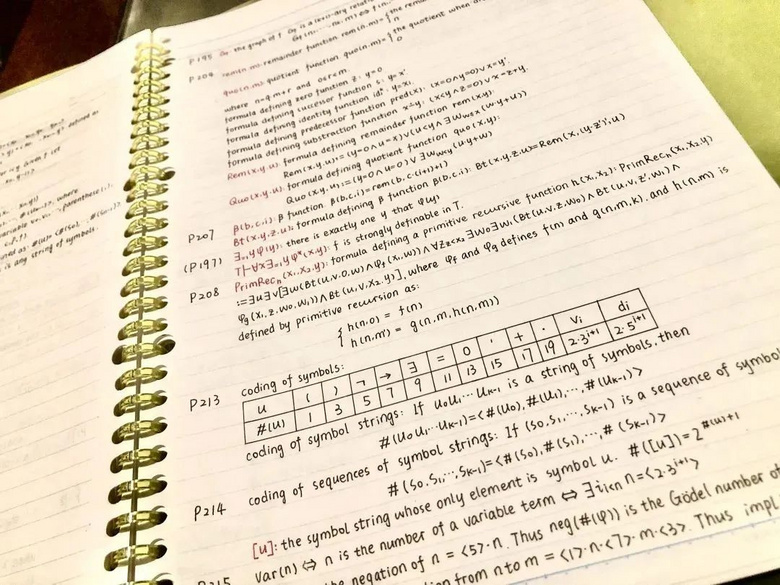 P195
P204 rem(n,m): remainder function rem(n,m)=
quo(n,m): quotient function quo(n,m)=
where n=q·m+r and 0≤r<m
formula defining zero function z: y=0
formula defining successor function s: y=x'
formula defining identity function
formula defining predecessor function pred(x): (x=0∧y=0)∨x=y'
formula defining substraction function x∸y: (x<y∧z=0)∨x=z+y.
Rem(x,y,u): formula defining remainder function rem(x,y):
Rem(x,y,u):=(y=0∧u=x)∨(u<y∧
Quo(x,y,u): formula defining quotient function quo(x,y):
Quo(x,y,u):=(y=0∧u=0)∨
P207 β(b,c,i): β function β(b,c,i)=rem(b,c·(i+1)+1)
Bt(x,y,z,u): formula defining β function β(b,c,i): Bt(x,y,z,u)=Rem(x,(y·z')',u)
∃₌₁yφ(y): there is exactly one y that φ(y)
(P197) T⊢∀x∃₌₁yφ*(x,y): f is strongly definable in T.
P208 PrimRecₕ(x₁,x₂,y): formula defining a primitive recursive function h(x₁,x₂): PrimRecₕ(x₁,x₂,y)
:=∃u∃v[∃w(Bt(u,v,0,w)∧φf(x₁,w))∧∀z<x₂∃w₀∃w₁(Bt(u,v,z,w₀)∧Bt(u,v,z',w₁)∧
φg(x₁,z,w₀,w₁))∧Bt(u,v,x₂,y)], where φf and φg defines f(n) and g(n,m,k), and h(n,m) is
defined by primitive recursion as:
{ h(n,0) = f(n)
h(n,m') = g(n,m,h(n,m))
P213 coding of symbols:
u ( ) ¬ → ∃ = 0 ' + · Vi di
#(u) 1 3 5 7 9 11 13 15 17 19 2·3^{i+1} 2·5^{i+1}
coding of symbol strings: If u₀u₁⋯uₖ₋₁ is a string of symbols, then
#(u₀u₁⋯uₖ₋₁)=<#(u₀),#(u₁),⋯,#(uₖ₋₁)>
coding of sequences of symbol strings: If (s₀,s₁,⋯,sₖ₋₁) is a sequence of symbol
#(s₀,s₁,⋯,sₖ₋₁)=<#(s₀),#(s₁),⋯,#(sₖ₋₁)>
P214 [u]: the symbol string whose only element is symbol u. #([u])=2^{#(u)+1}
Var(n) ⇔ n is the number of a variable term ⇔ ∃i<n n=<2·3^{i+1}>
P215 the negation of n = <5>·n. Thus neg(#(φ)) is the Gödel number of
from n to m = <1>·n·<7>·m·<3>. Thus impl